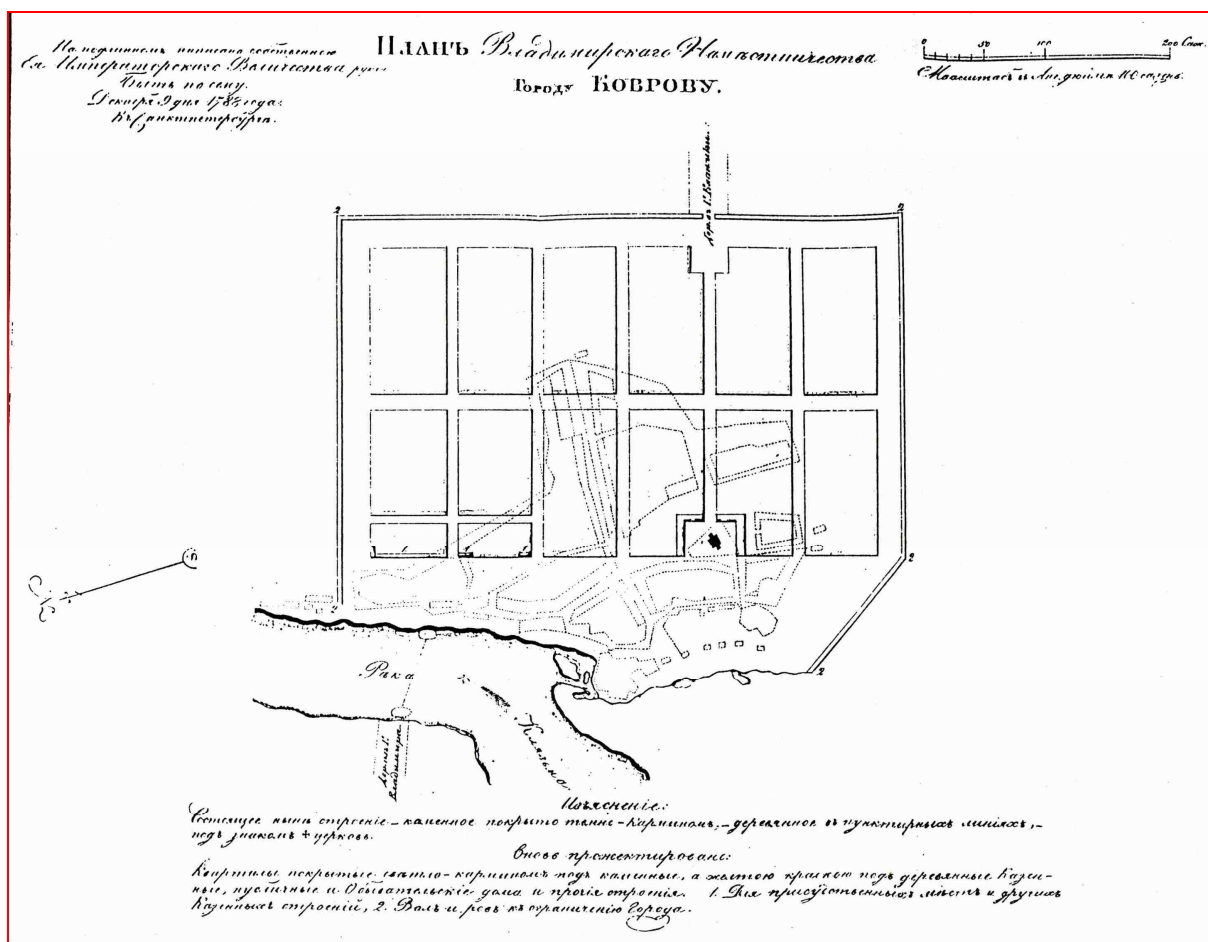 На подлинномъ написано собственною
Ея Императорскаго Величества рукою
Быть по сему.
Декабря 9 дня 1788 года.
Въ Санктпетербурге.
Планъ Владимирскаго Намѣстничества
Городу Коврову.
0 50 100 200 Саж.
Масштабъ въ Анг. дюймѣ 100 саженъ.
2
2
2
2
2
Рѣка
Клязьма
Владимира
Изъясненіе:
Состоящее нынѣ строеніе – каменное покрыто темно-карминомъ; – деревянное въ пунктирныхъ линіяхъ, –
подъ знакомъ + церковь.
Вновь прожектировано:
Кварталы покрытые свѣтло-карминомъ подъ каменные, а желтою краскою подъ деревянные Казен-
ные, публичные и Обывательскіе дома и прочія строенія. 1. Для присудственныхъ мѣстъ и другихъ
Казенныхъ строеній, 2. Валъ и ровъ къ ограниченію Города.